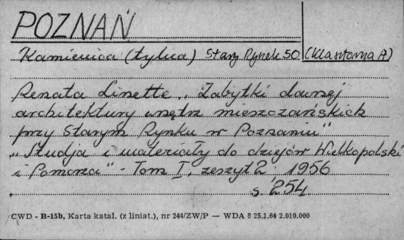 POZNAŃ
Kamienica (tylna) Stary Rynek 50 (Klasztorna A)
Renata Linette, "Zabytki dawnej
architektury wnętrz mieszczańskich
przy Starym Rynku w Poznaniu"
"Studja i materiały do dziejów Wielkopolski
i Pomorza" - Tom I, zeszyt 2. 1956
s. 254
CWD - B-15b, Karta katal. (z liniat.), nr 244/ZW/P — WDA 8 25.1.64 2.010.000